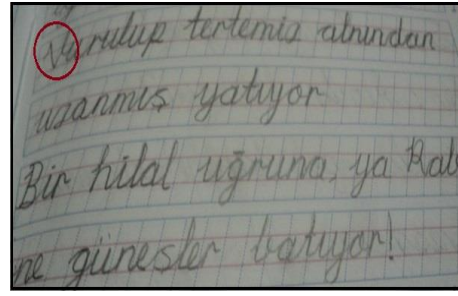 Vurulup tertemiz alnından
uzanmış yatıyor
Bir hilal uğruna, ya Rab
ne güneşler batıyor!